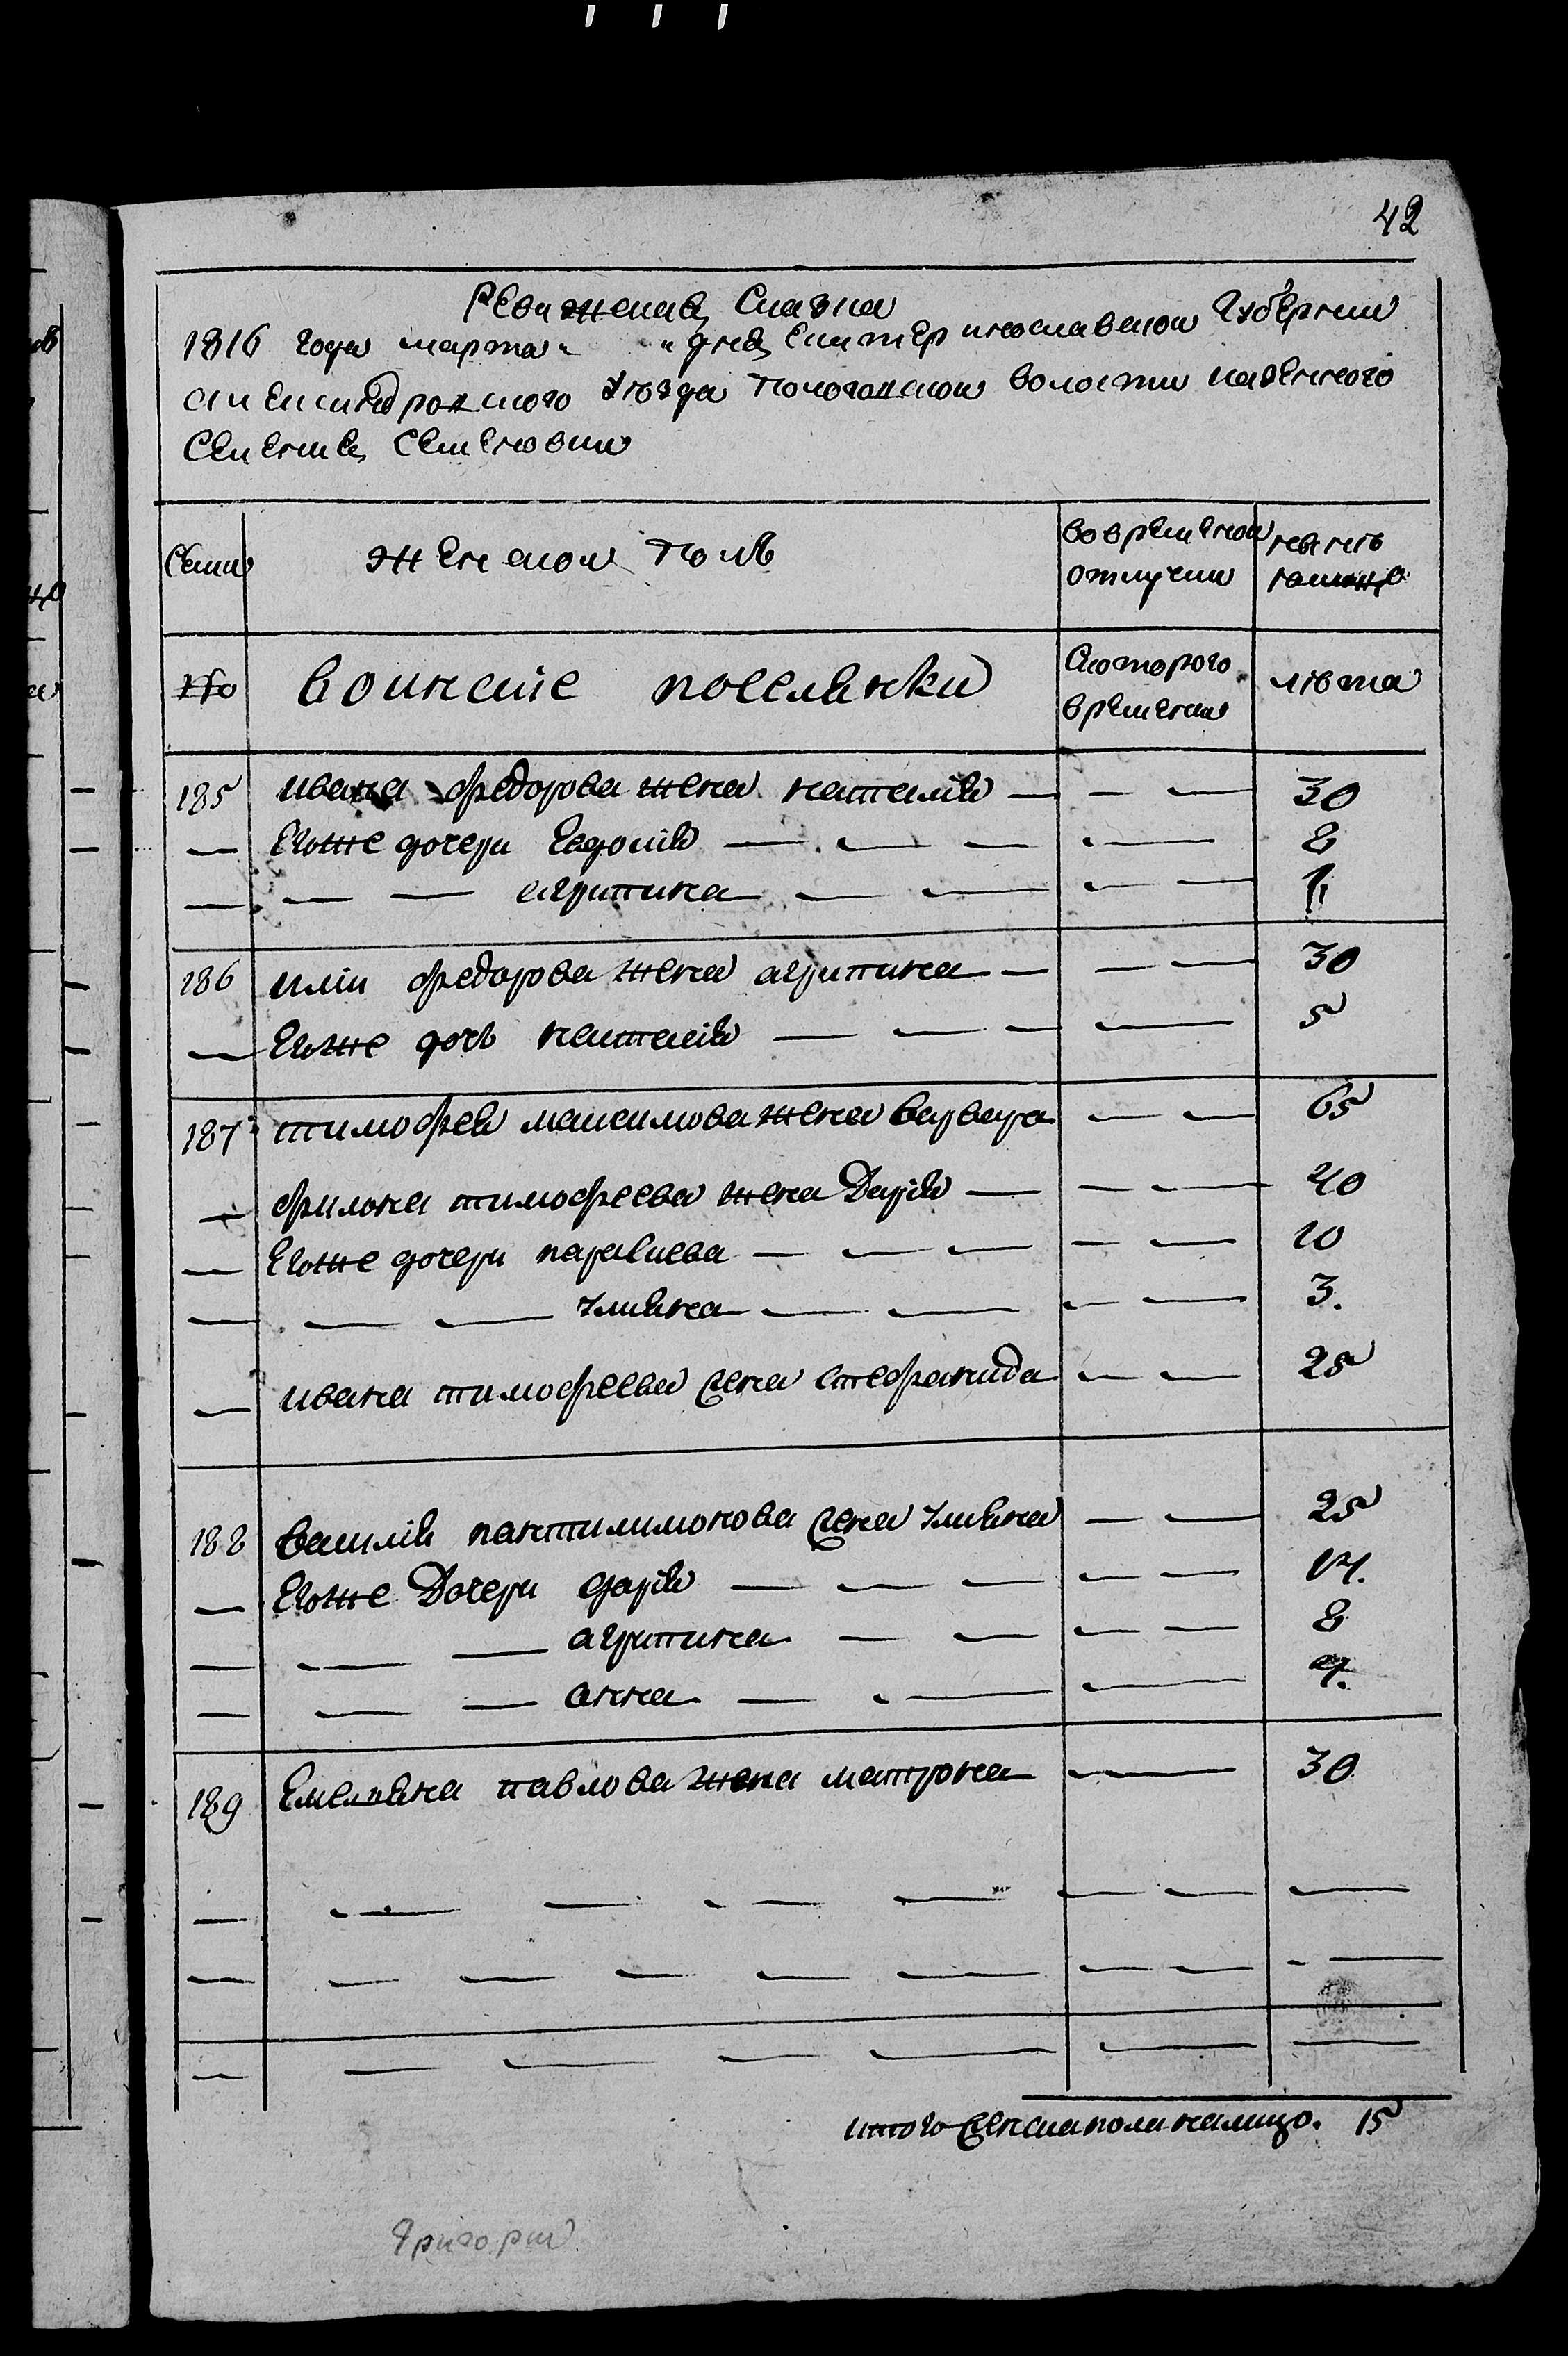 42
Ревижская Сказка
1816 года марта „ „ дня Екатеринославской Губернии
александровского Уѣзда Пологовской волости казенного
Селения Семеновки
Семи женской полъ во временной отлучки нынѣ налицо
№ воинскіе поселянки Скоторого времени лѣта
185 ивана федорова жена наталія — — — 30
— Егоже дочери Евдокія — — — — 8
— — — агрипина — — — — 1
186 иліи федорова жена агрипина — — — 30
— Егоже дочь наталія — — — — 5
187 тимофея максимова жена варвара — — 65
— филона тимофеева жена Дарія — — — 40
— Егоже дочери парасковея — — — — — 10
— — — Улияна — — — — 3.
— ивана тимофеева жена стефанида — — 25
188 василія пантилимонова жена Улияна — — 25
— Егоже Дочери дарія — — — — — 14.
— — — агрипина — — — — 8
— — — анна — — — 4.
189 Емельяна павлова жена матрона — 30
— — — — — — — —
— — — — — — — — — —
— — — — — — —
итого женска пола налицо. 15
Григорий